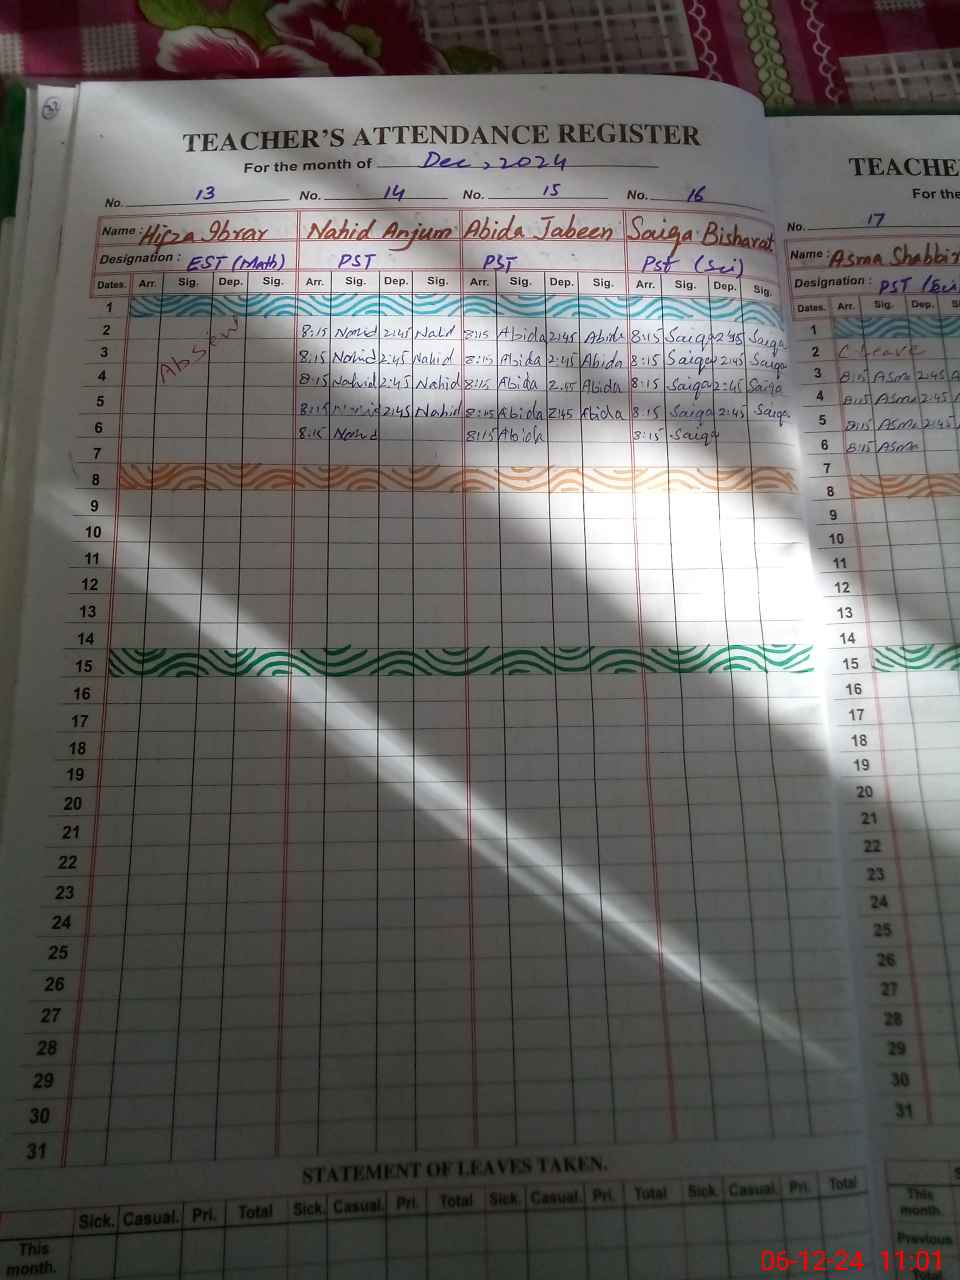 TEACHER'S ATTENDANCE REGISTER
For the month of Dec, 2024
No. 13 No. 14 No. 15 No. 16
Name: Hifza Ibrar Nahid Anjum Abida Jabeen Saiqa Bisharat
Designation: EST (Math) PST PST PST (Sci)
Dates. Arr. Sig. Dep. Sig. Arr. Sig. Dep. Sig. Arr. Sig. Dep. Sig. Arr. Sig. Dep. Sig.
1
2 Absent 8:15 Nahid 2:45 Nahid 8:15 Abida 2:45 Abida 8:15 Saiqa 2:45 Saiqa
3 8:15 Nahid 2:45 Nahid 8:15 Abida 2:45 Abida 8:15 Saiqa 2:45 Saiqa
4 8:15 Nahid 2:45 Nahid 8:15 Abida 2:45 Abida 8:15 Saiqa 2:45 Saiqa
5 8:15 Nahid 2:45 Nahid 8:15 Abida 2:45 Abida 8:15 Saiqa 2:45 Saiqa
6 8:15 Nahid 8:15 Abida 8:15 Saiqa
7
8
9
10
11
12
13
14
15
16
17
18
19
20
21
22
23
24
25
26
27
28
29
30
31
STATEMENT OF LEAVES TAKEN.
Sick. Casual. Pri. Total Sick. Casual. Pri. Total Sick. Casual. Pri. Total
This month.
TEACHE
For the
No. 17
Name: Asma Shabbir
Designation: PST
Dates. Arr. Sig. Dep. S
1
2 C leave
3 8:15 Asma 2:45 A
4 8:15 Asma 2:45
5 8:15 Asma 2:45
6 8:15 Asma
7
8
9
10
11
12
13
14
15
16
17
18
19
20
21
22
23
24
25
26
27
28
29
30
31
S
This month
Previous
06-12-24 11:01